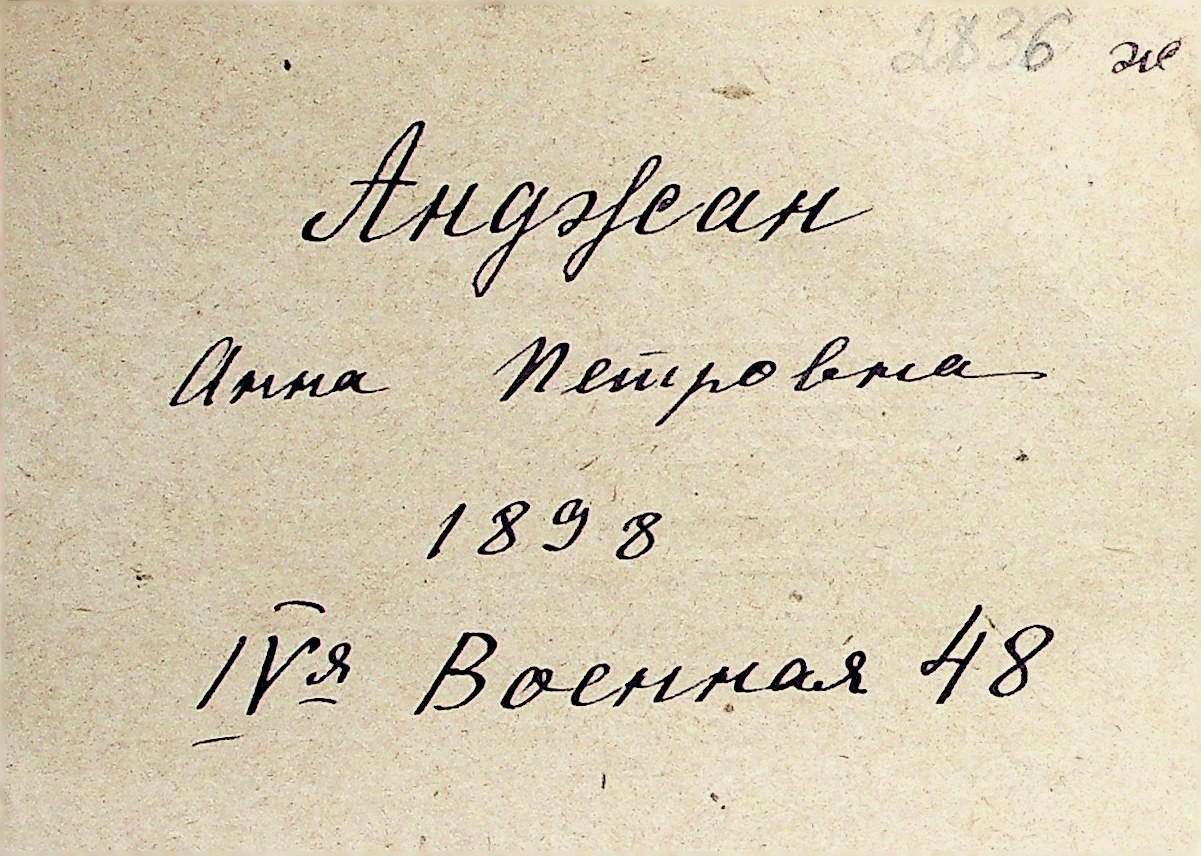 2836 ж
Анджан
Анна Петровна
1898
IVя Военная 48